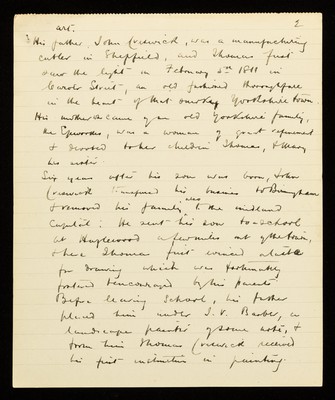 2
art.
His father, John Creswick, was a manufacturing
cutler in Sheffield, and Thomas first
saw the light in February 5th 1811 in
Street, an old fashioned thoroughfare
in the heart of that smoky Yorkshire town.
His mother came of an old Yorkshire family,
the Epworths, was a woman of great refinement
& devoted to her children Thomas, & Mary
his sister.
Six years after his son was born, John
Creswick transferred his business to Birmingham
& removed his family to the midland
Capital. He sent his son to school
at Hazlewood a few miles out of the town,
& here Thomas first evinced a taste
for drawing which was fortunately
fostered & encouraged by his parents.
Before leaving school, his father
placed him under J. V. Barber, a
landscape painter of some note, &
from him Thomas Creswick received
his first instruction in painting.